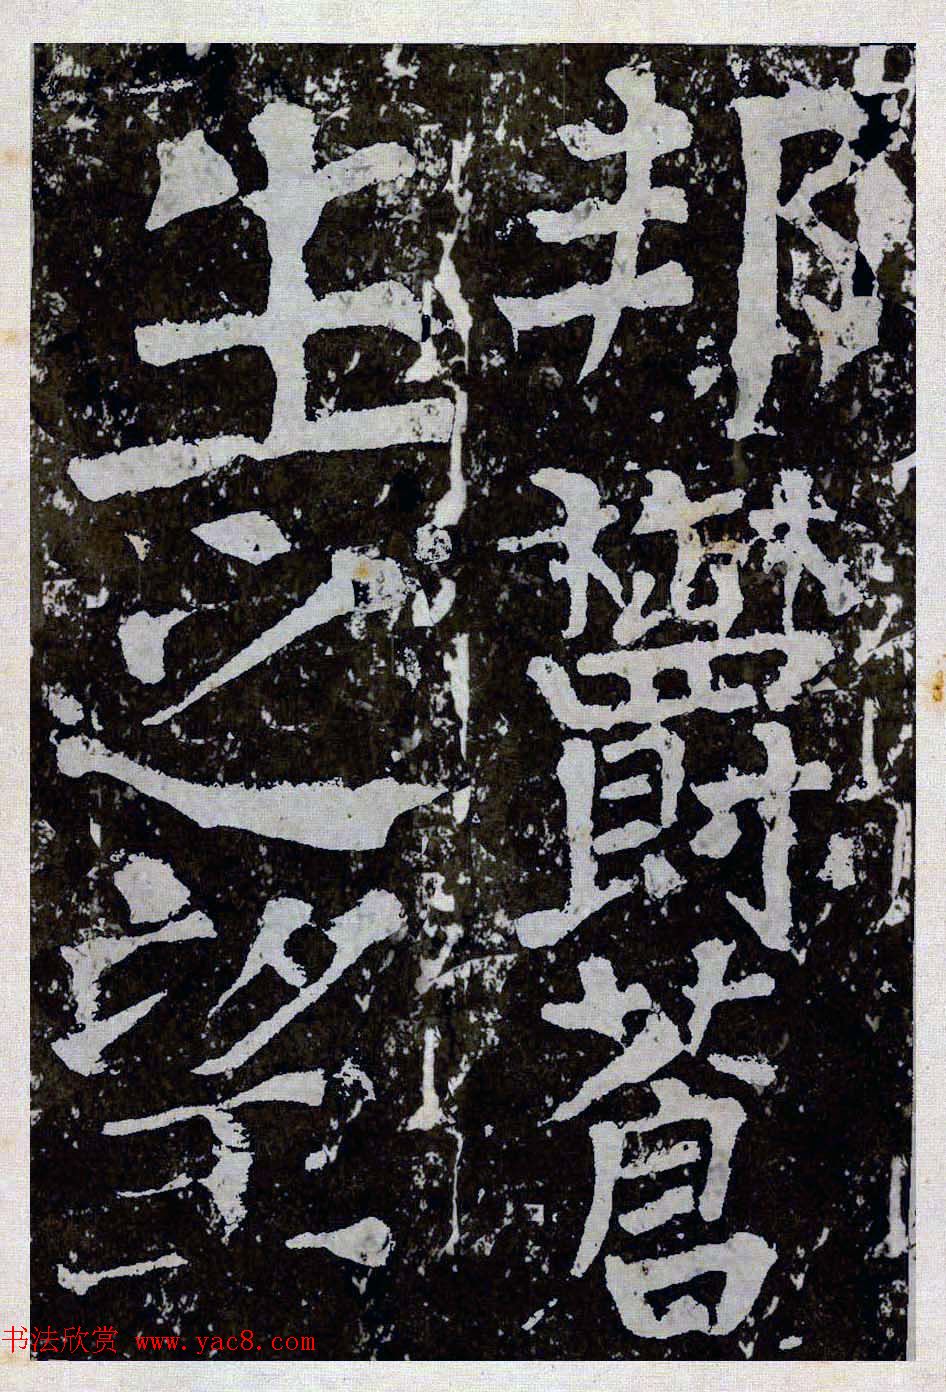 邦鬱蒼
生之望
书法欣赏 www.yac8.com